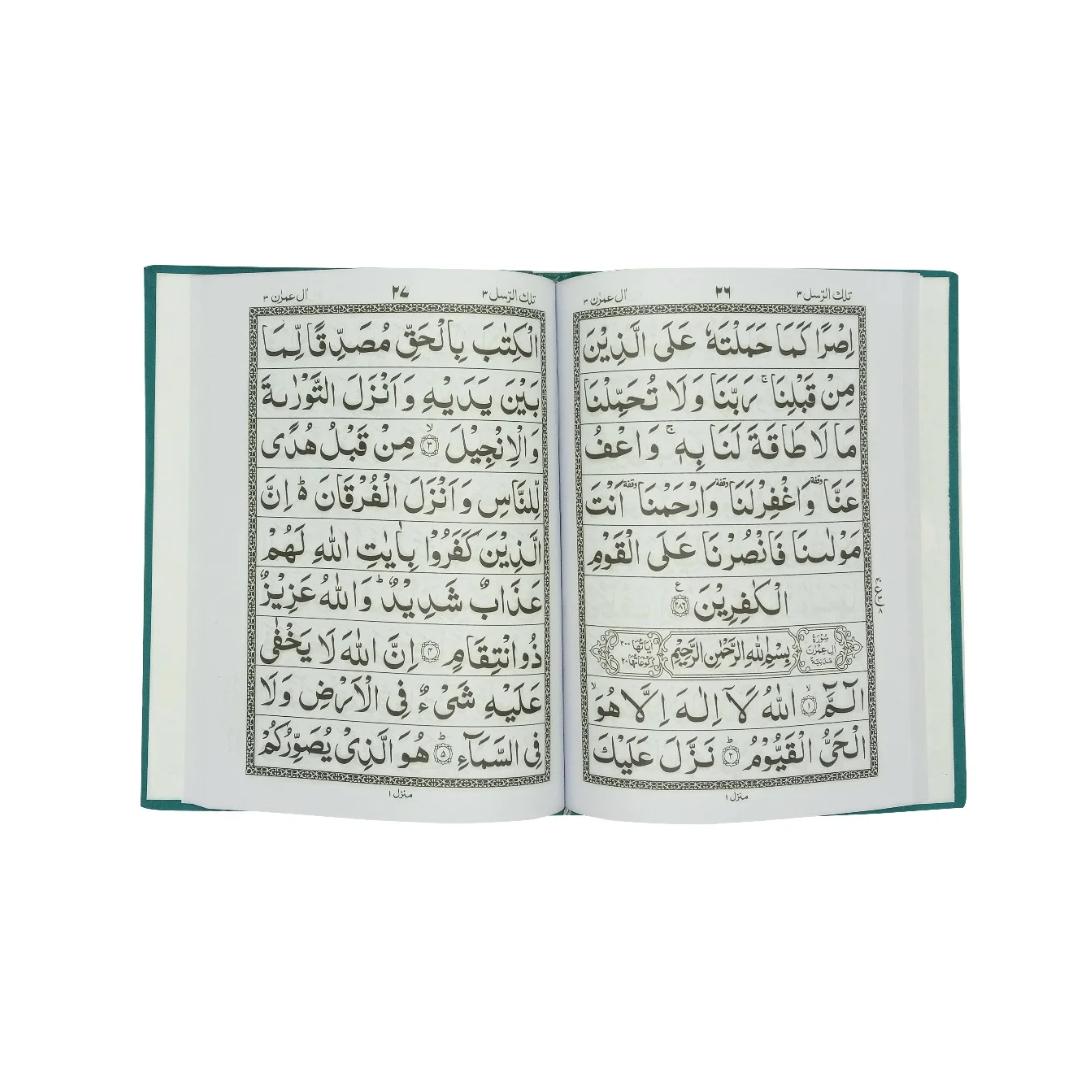 تلك الرسل ٣
٢٦
ال عمرٰن ٣
اِصْرًا كَمَا حَمَلْتَهٗ عَلَى الَّذِيْنَ
مِنْ قَبْلِنَا ۚ رَبَّنَا وَلَا تُحَمِّلْنَا
مَا لَا طَاقَةَ لَنَا بِهٖ ۚ وَاعْفُ
عَنَّا وقفة وَاغْفِرْلَنَا وقفة وَارْحَمْنَا وقفة اَنْتَ
مَوْلٰىنَا فَانْصُرْنَا عَلَى الْقَوْمِ
الْكٰفِرِيْنَ ۝٢٨٦ ع
سُوْرَةُ اٰلِ عِمْرٰنَ مَدَنِيَّةٌ
بِسْمِ اللّٰهِ الرَّحْمٰنِ الرَّحِيْمِ
اٰيَاتُهَا ٢٠٠ رُكُوْعَاتُهَا ٢٠
الٓمَّٓ ۝١ۙ اللّٰهُ لَاۤ اِلٰهَ اِلَّا هُوَ ۙ
الْحَىُّ الْقَيُّوْمُ ۝٢ؕ نَزَّلَ عَلَيْكَ
منزل ١
تلك الرسل ٣
٢٧
ال عمرٰن ٣
الْكِتٰبَ بِالْحَقِّ مُصَدِّقًا لِّمَا
بَيْنَ يَدَيْهِ وَاَنْزَلَ التَّوْرٰىةَ
وَالْاِنْجِيْلَ ۝٣ۙ مِنْ قَبْلُ هُدًى
لِّلنَّاسِ وَاَنْزَلَ الْفُرْقَانَ ۵ؕ اِنَّ
الَّذِيْنَ كَفَرُوْا بِاٰيٰتِ اللّٰهِ لَهُمْ
عَذَابٌ شَدِيْدٌ ؕ وَاللّٰهُ عَزِيْزٌ
ذُو انْتِقَامٍ ۝٤ اِنَّ اللّٰهَ لَا يَخْفٰى
عَلَيْهِ شَىْءٌ فِى الْاَرْضِ وَلَا
فِى السَّمَآءِ ۝٥ؕ هُوَ الَّذِىْ يُصَوِّرُكُمْ
منزل ١